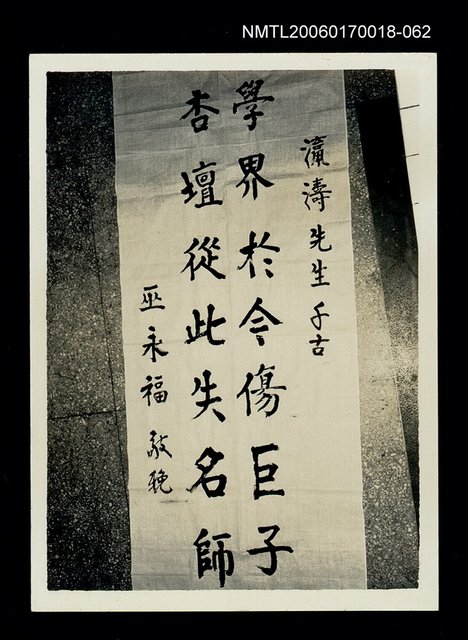 NMTL20060170018-062
瀛濤先生千古
學界於今傷巨子
杏壇從此失名師
巫永福敬輓